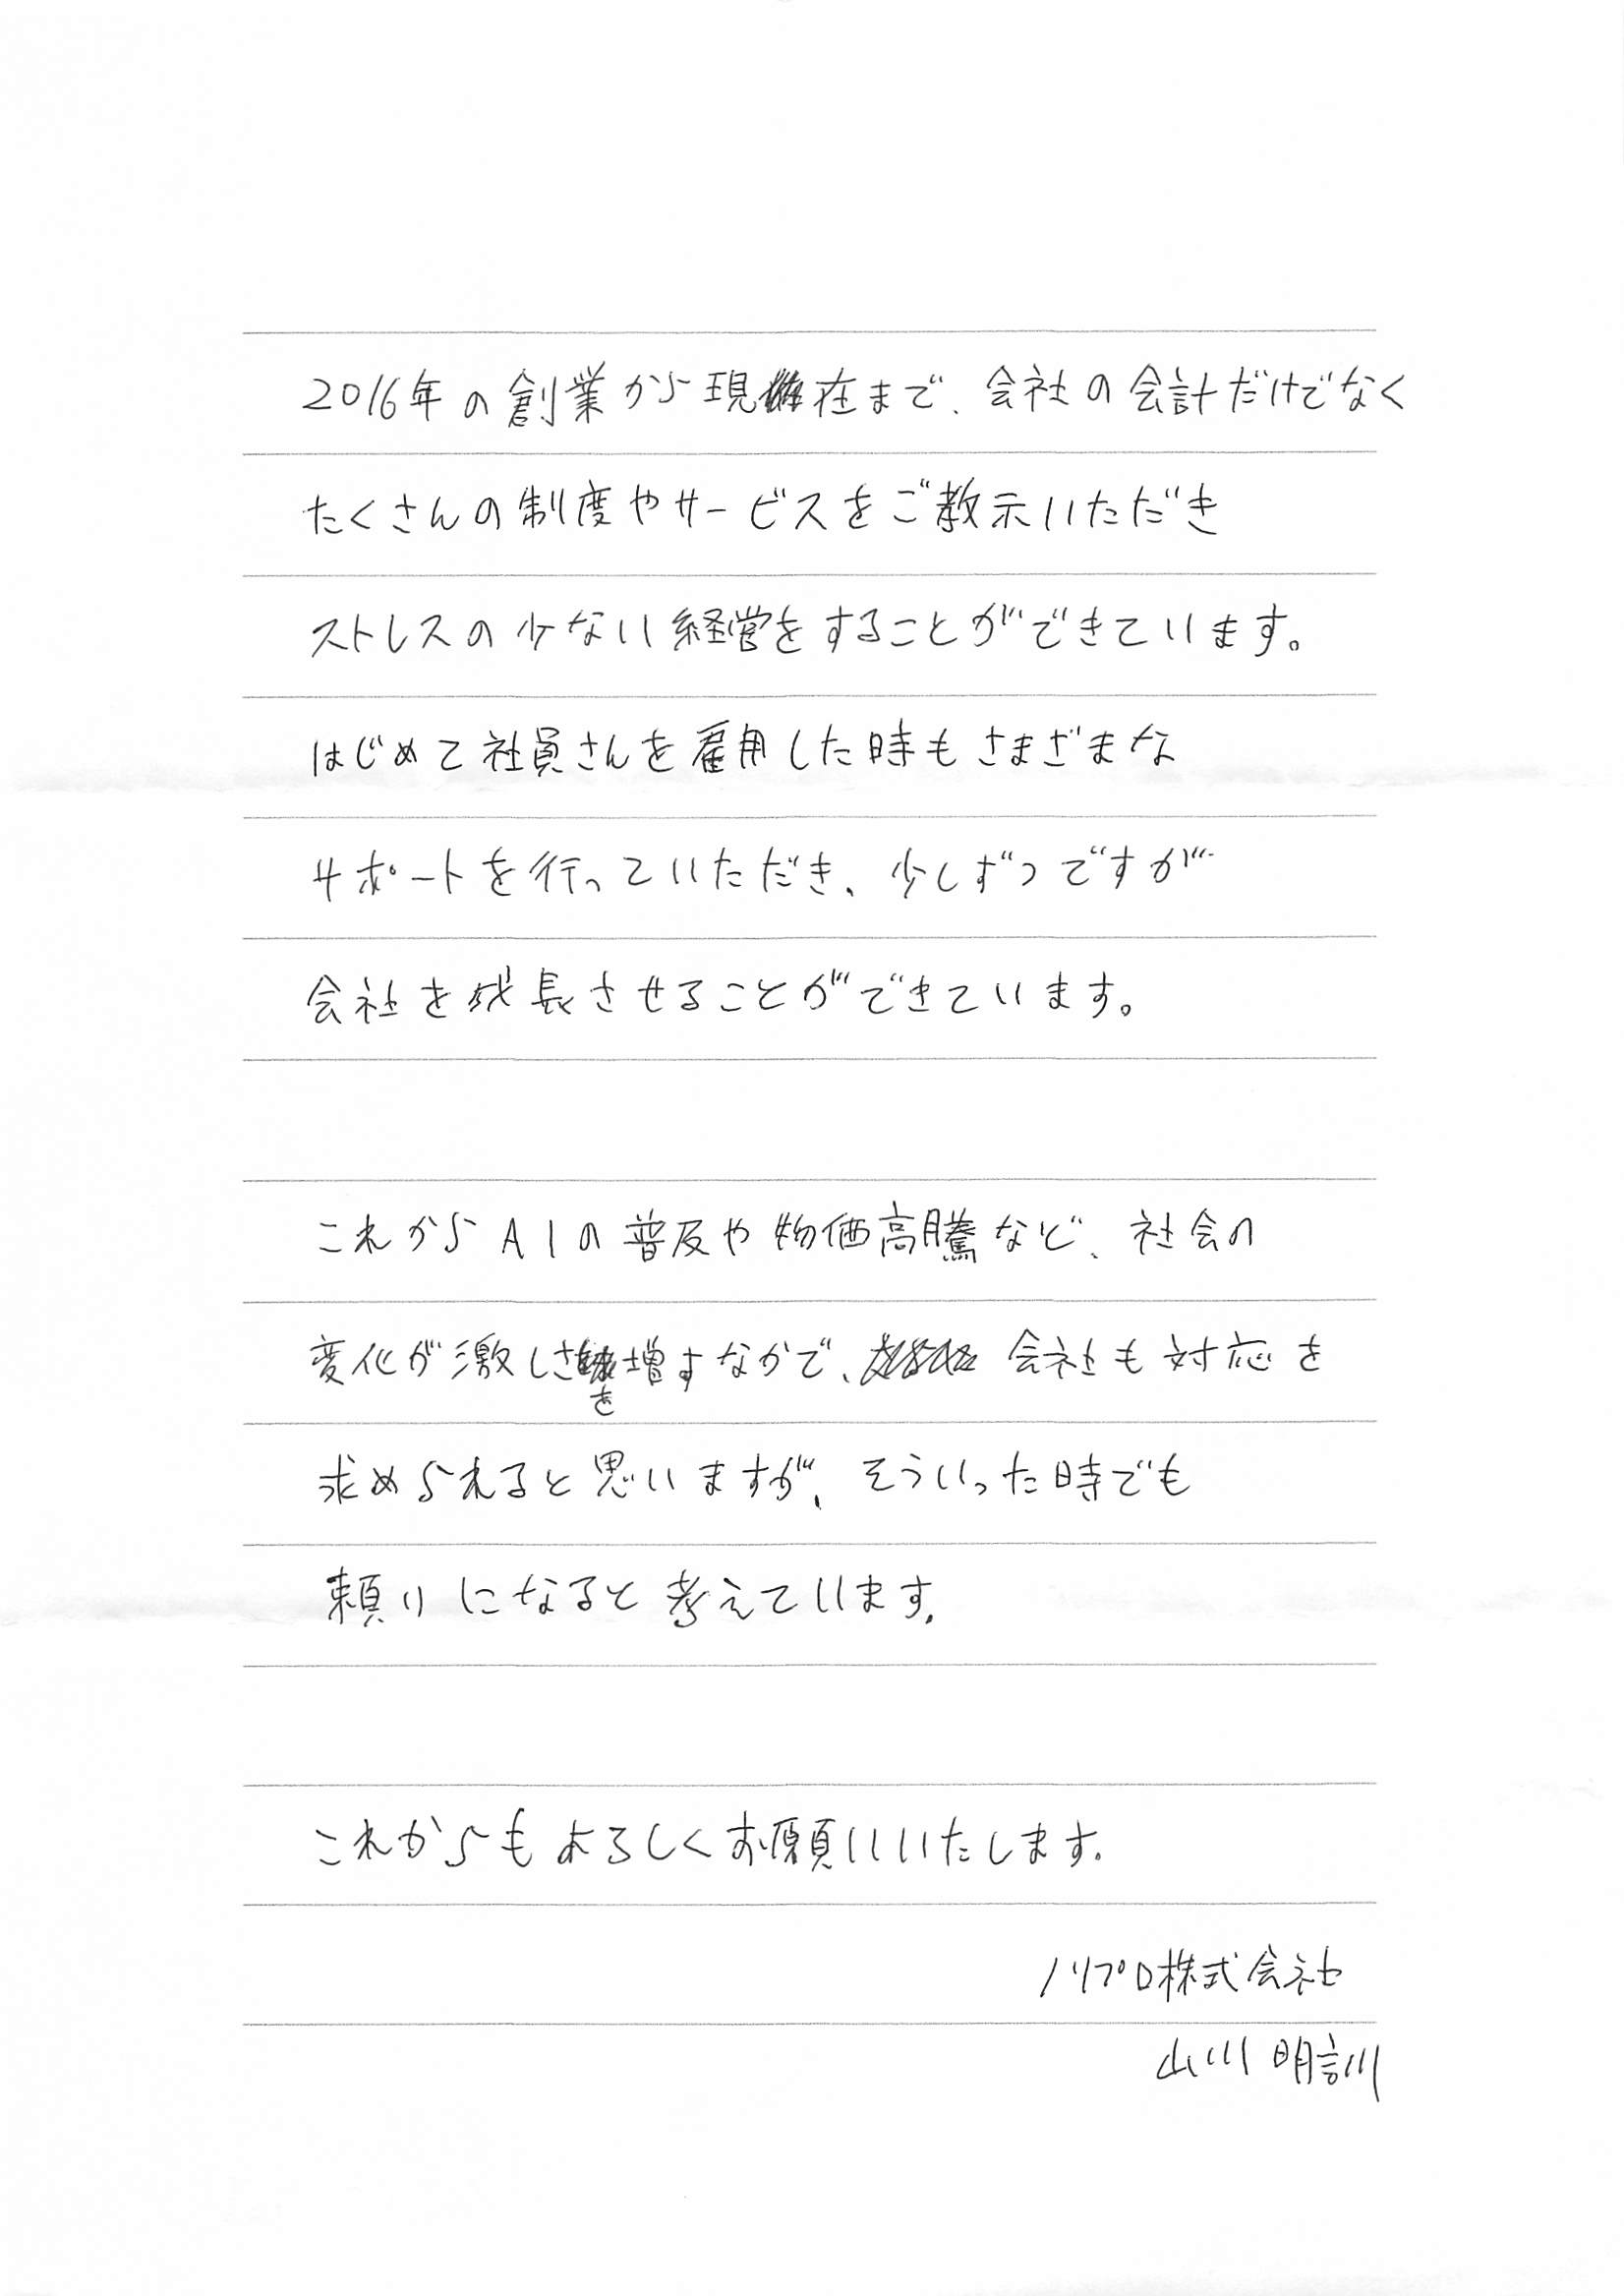 2016年の創業から現在まで、会社の会計だけでなく
たくさんの制度やサービスをご教示いただき
ストレスの少ない経営をすることができています。
はじめて社員さんを雇用した時もさまざまな
サポートを行っていただき、少しずつですが
会社を成長させることができています。
これからAIの普及や物価高騰など、社会の
変化が激しさを増すなかで、会社も対応を
求められると思いますが、そういった時でも
頼りになると考えています。
これからもよろしくお願いいたします。
ノリプロ株式会社
山川 明訓